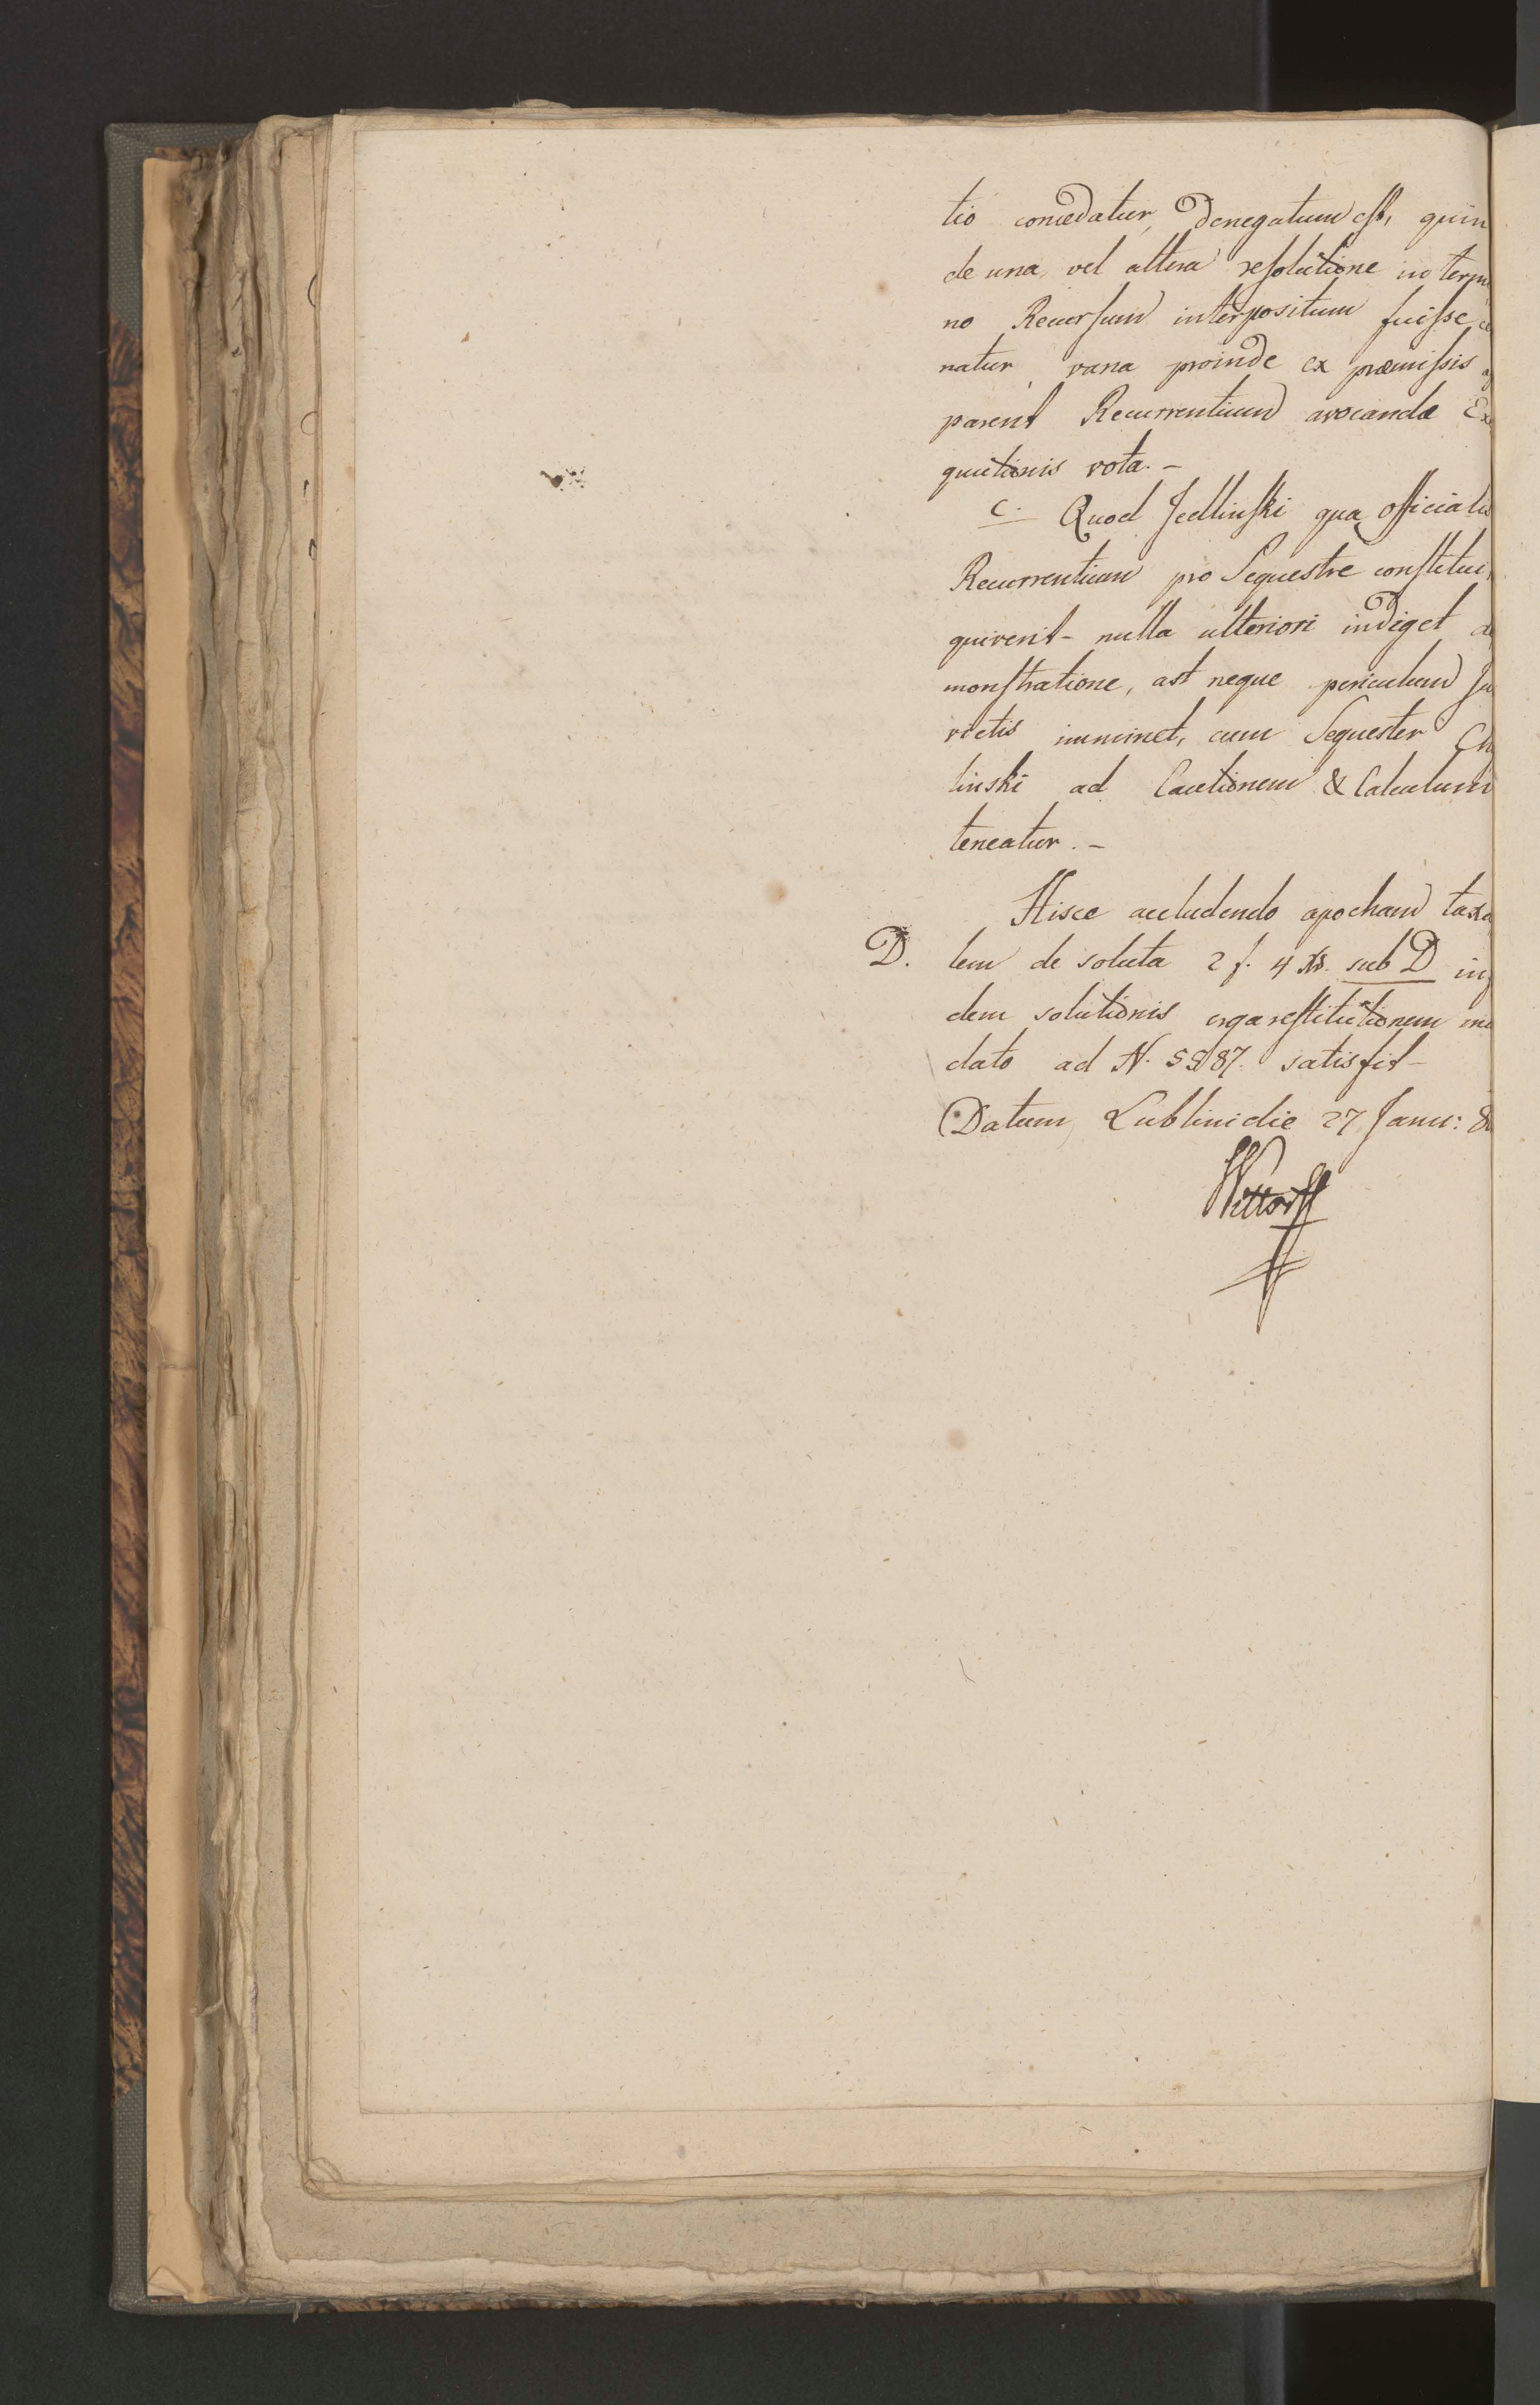 tio concedatur, denegatum est, quin
de una vel altera resolutione in termi
no Recursum interpositum fuisse
natur, vana proinde ex præmissis
parent Recurrentium avocandæ Ex
quutionis vota. –
C. Quod Jedlinski qua officialis
Recurrentium pro Sequestre constitui
quiverit – nulla ulteriori indiget de
monstratione, ast neque periculum
rictis imminet, cum Sequester
linski ad Cautionem & Calculum
teneatur. –
Hisce accludendo apocham taxa
D. lem de soluta 2 f. 4 xr. sub D
dem solutionis erga restitutionem
dato ad N. 5987. satisfit –
Datum Lublini die 27 Janu:
Wittorff